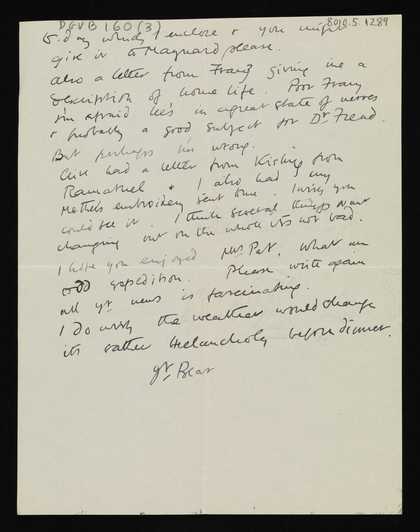 DGVB 160 (3) 8010.5.1289
to-day which I enclose & you might
give it to Maynard please.
Also a letter from Franz giving me a
description of home life. Poor Franz
I'm afraid he's in a great state of nerves
& probably a good subject for Dr Freud.
But perhaps I'm wrong.
Clive had a letter from Kisling from
Ramatuel & I also had my
Mother's embroidery sent home. I wish you
could see it. I think several things want
changing but on the whole it's not bad.
I hope you enjoyed Mrs Pat. What an
odd expedition. Please write again
all yr news is fascinating.
I do wish the weather would change
its rather melancholy before dinner.
yr Bear